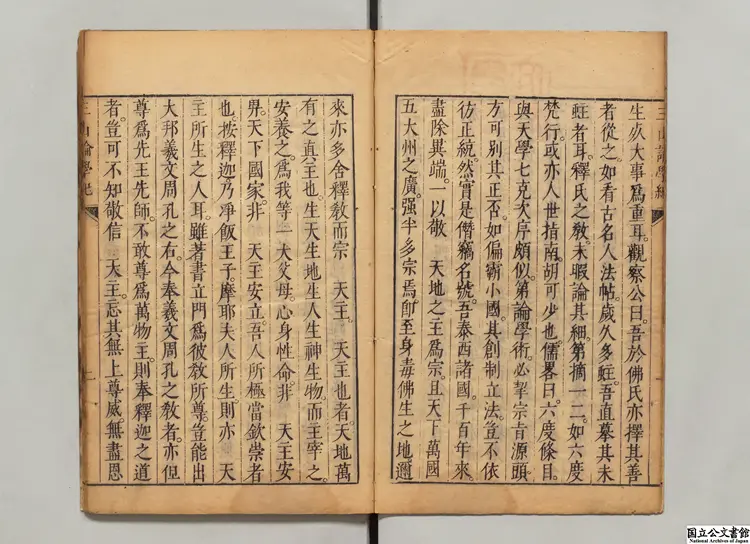 三山論學紀
生灰大事爲重耳。觀察公曰。吾於佛氏亦擇其善
者從之。如看古名人法帖。歲久多蛀。吾直摹其未
蛀者耳。釋氏之敎。未暇論其細。第摘一二。如六度
梵行。或亦人世指南。胡可少也。儒畧曰。六度條目。
與天學七克次序頗似。第論學術。必挈宗旨源頭
方可別其正否。如偏霸小國其創制立法。豈不依
彷正統。然實是僭竊名號。吾泰西諸國。千百年來。
盡除異端。一以敬 天地之主爲宗。且天下萬國
五大州之廣。强半多宗焉。卽至身毒佛生之地邇
來亦多舍釋敎而宗 天主。 天主也者。天地萬
有之眞主也。生天生地生人生神生物。而主宰之。
安養之。爲我等一大父母。心身性命。非 天主安
畀。天下國家。非 天主安立。吾人所極當欽崇者
也。按釋迦乃淨飯王子。摩耶夫人所生則亦 天
主所生之人耳。雖著書立門爲彼敎所尊。豈能出
大邦羲文周孔之右。今奉羲文周孔之敎者。亦但
尊爲先王先師。不敢尊爲萬物主。則奉釋迦之道
者。豈可不知敬信 天主。忘其無上尊威。無盡恩
三山論學紀
二
国立公文書館
National Archives of Japan